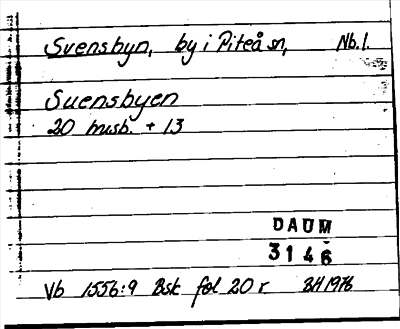 Svensbyn, by i Piteå sn, Nb.l.
Suensbyen
20 husb. + 13
DAUM
3146
Vb 1556:9 Bsk fol 20 r BH 1976